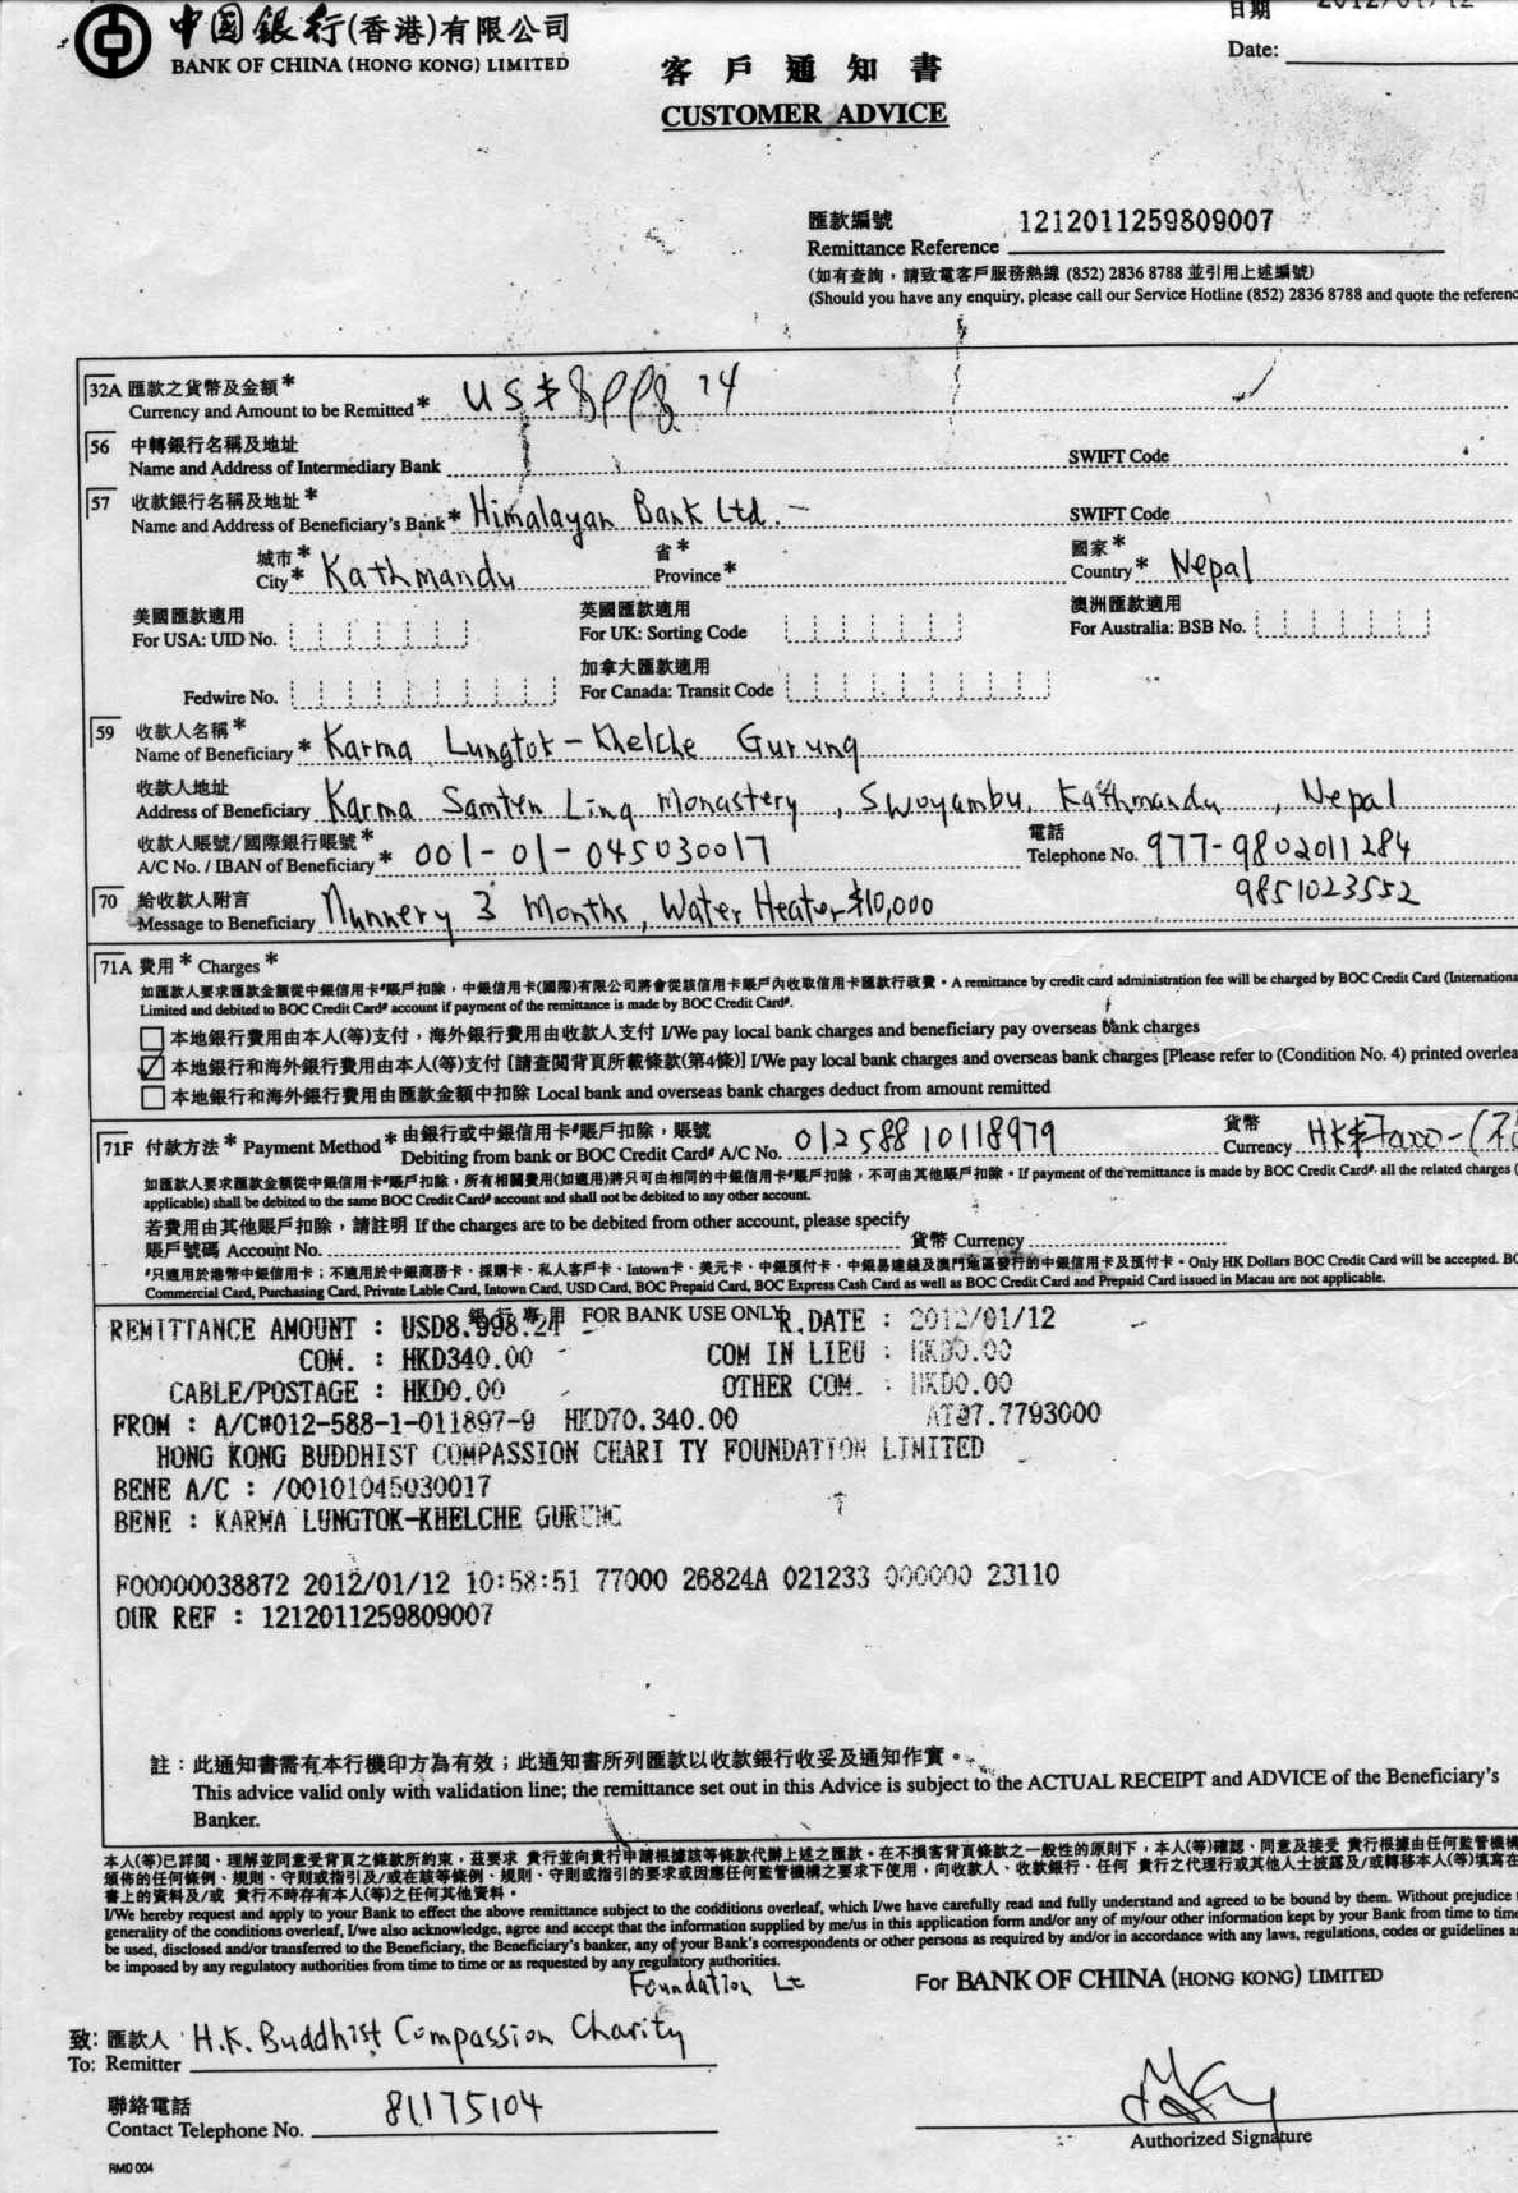 中國銀行(香港)有限公司
BANK OF CHINA (HONG KONG) LIMITED
日期 2012/01/12
Date:
客戶通知書
CUSTOMER ADVICE
匯款編號 1212011259809007
Remittance Reference
(如有查詢，請致電客戶服務熱線 (852) 2836 8788 並引用上述編號)
(Should you have any enquiry, please call our Service Hotline (852) 2836 8788 and quote the referenc
32A 匯款之貨幣及金額*
Currency and Amount to be Remitted* US$
56 中轉銀行名稱及地址
Name and Address of Intermediary Bank SWIFT Code
57 收款銀行名稱及地址*
Name and Address of Beneficiary's Bank* Himalayan Bank Ltd. - SWIFT Code
城市* 省* 國家*
City* Kathmandu Province* Country* Nepal
美國匯款適用 英國匯款適用 澳洲匯款適用
For USA: UID No. For UK: Sorting Code For Australia: BSB No.
加拿大匯款適用
Fedwire No. For Canada: Transit Code
59 收款人名稱*
Name of Beneficiary* Karma Lungtok-Khelche Gurung
收款人地址
Address of Beneficiary Karma Samten Ling Monastery, Swoyambu, Kathmandu, Nepal
收款人賬號/國際銀行賬號* 電話
A/C No. / IBAN of Beneficiary* 001-01-045030017 Telephone No. 977-9802011284
9851023552
70 給收款人附言
Message to Beneficiary Nunnery 3 Months, Water Heater $10,000
71A 費用* Charges*
如匯款人要求匯款金額從中銀信用卡#賬戶扣除，中銀信用卡(國際)有限公司將會從該信用卡賬戶內收取信用卡匯款行政費。A remittance by credit card administration fee will be charged by BOC Credit Card (Internationa
Limited and debited to BOC Credit Card# account if payment of the remittance is made by BOC Credit Card#.
本地銀行費用由本人(等)支付，海外銀行費用由收款人支付 I/We pay local bank charges and beneficiary pay overseas bank charges
本地銀行和海外銀行費用由本人(等)支付 [請查閱背頁所載條款(第4條)] I/We pay local bank charges and overseas bank charges [Please refer to (Condition No. 4) printed overlea
本地銀行和海外銀行費用由匯款金額中扣除 Local bank and overseas bank charges deduct from amount remitted
71F 付款方法* Payment Method* 由銀行或中銀信用卡#賬戶扣除，賬號 貨幣
Debiting from bank or BOC Credit Card# A/C No. 01258810118979 Currency HK$
如匯款人要求匯款金額從中銀信用卡#賬戶扣除，所有相關費用(如適用)將只可由相同的中銀信用卡#賬戶扣除，不可由其他賬戶扣除。If payment of the remittance is made by BOC Credit Card#, all the related charges (
applicable) shall be debited to the same BOC Credit Card# account and shall not be debited to any other account.
若費用由其他賬戶扣除，請註明 If the charges are to be debited from other account, please specify
賬戶號碼 Account No. 貨幣 Currency
#只適用於港幣中銀信用卡；不適用於中銀商務卡、採購卡、私人客戶卡、Intown卡、美元卡、中銀預付卡、中銀易達錢及澳門地區發行的中銀信用卡及預付卡。Only HK Dollars BOC Credit Card will be accepted. BO
Commercial Card, Purchasing Card, Private Lable Card, Intown Card, USD Card, BOC Prepaid Card, BOC Express Cash Card as well as BOC Credit Card and Prepaid Card issued in Macau are not applicable.
銀行專用 FOR BANK USE ONLY
REMITTANCE AMOUNT : USD8,998.24 R.DATE : 2012/01/12
COM. : HKD340.00 COM IN LIEU : HKD0.00
CABLE/POSTAGE : HKD0.00 OTHER COM. : HKD0.00
FROM : A/C#012-588-1-011897-9 HKD70,340.00 AT@7.7793000
HONG KONG BUDDHIST COMPASSION CHARI TY FOUNDATION LIMITED
BENE A/C : /00101045030017
BENE : KARMA LUNGTOK-KHELCHE GURUNG
F00000038872 2012/01/12 10:58:51 77000 26824A 021233 000000 23110
OUR REF : 1212011259809007
註：此通知書需有本行機印方為有效；此通知書所列匯款以收款銀行收妥及通知作實。
This advice valid only with validation line; the remittance set out in this Advice is subject to the ACTUAL RECEIPT and ADVICE of the Beneficiary's
Banker.
本人(等)已詳閱、理解並同意受背頁之條款所約束，茲要求 貴行並向貴行申請根據該等條款代辦上述之匯款。在不損害背頁條款之一般性的原則下，本人(等)確認、同意及接受 貴行根據由任何監管機構
頒佈的任何條例、規則、守則或指引及/或在該等條例、規則、守則或指引的要求或因應任何監管機構之要求下使用，向收款人、收款銀行、任何 貴行之代理行或其他人士披露及/或轉移本人(等)填寫在
書上的資料及/或 貴行不時存有本人(等)之任何其他資料。
I/We hereby request and apply to your Bank to effect the above remittance subject to the conditions overleaf, which I/we have carefully read and fully understand and agreed to be bound by them. Without prejudice
generality of the conditions overleaf, I/we also acknowledge, agree and accept that the information supplied by me/us in this application form and/or any of my/our other information kept by your Bank from time to time
be used, disclosed and/or transferred to the Beneficiary, the Beneficiary's banker, any of your Bank's correspondents or other persons as required by and/or in accordance with any laws, regulations, codes or guidelines as
be imposed by any regulatory authorities from time to time or as requested by any regulatory authorities.
Foundation Lt
For BANK OF CHINA (HONG KONG) LIMITED
致: 匯款人 H.K. Buddhist Compassion Charity
To: Remitter
聯絡電話 81175104
Contact Telephone No.
Authorized Signature
RMD 004